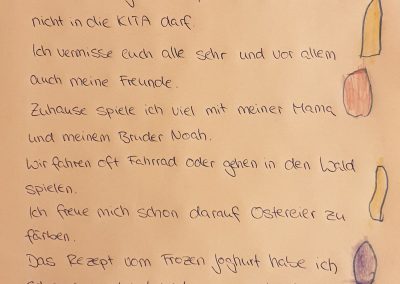 nicht in die KITA darf.
Ich vermisse euch alle sehr und vor allem
auch meine Freunde.
Zuhause spiele ich viel mit meiner Mama
und meinem Bruder Noah.
Wir fahren oft Fahrrad oder gehen in den Wald
spielen.
Ich freue mich schon darauf Ostereier zu
färben.
Das Rezept vom Frozen Joghurt habe ich